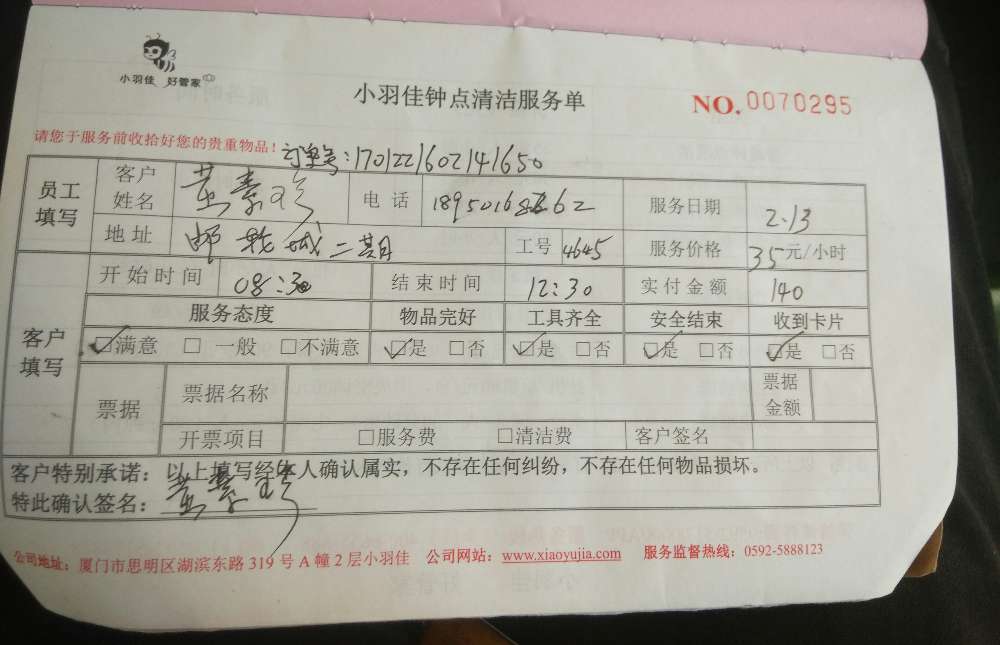 小羽佳 好管家
小羽佳钟点清洁服务单
NO. 0070295
请您于服务前收拾好您的贵重物品!
订单号:17012216021416 50
员工填写 客户姓名 黄素珍 电话 服务日期 2.13
地址 邮轮城二期 工号 4645 服务价格 35元/小时
客户填写 开始时间 08:30 结束时间 12:30 实付金额 140
服务态度 物品完好 工具齐全 安全结束 收到卡片
☑满意 □一般 □不满意 ☑是 □否 ☑是 □否 ☑是 □否 ☑是 □否
票据 票据名称 票据金额
开票项目 □服务费 □清洁费 客户签名
客户特别承诺:以上填写经本人确认属实,不存在任何纠纷,不存在任何物品损坏。
特此确认签名:黄素珍
公司地址:厦门市思明区湖滨东路 319 号 A 幢 2 层小羽佳 公司网站:www.xiaoyujia.com 服务监督热线:0592-5888123